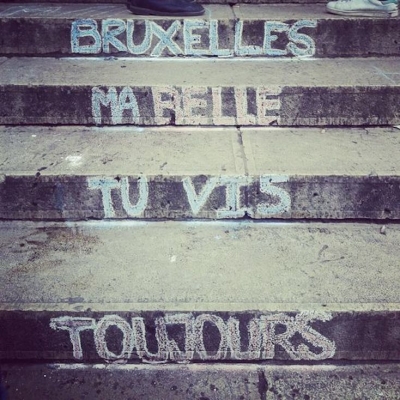 BRUXELLES
MA BELLE
TU VIS
TOUJOURS